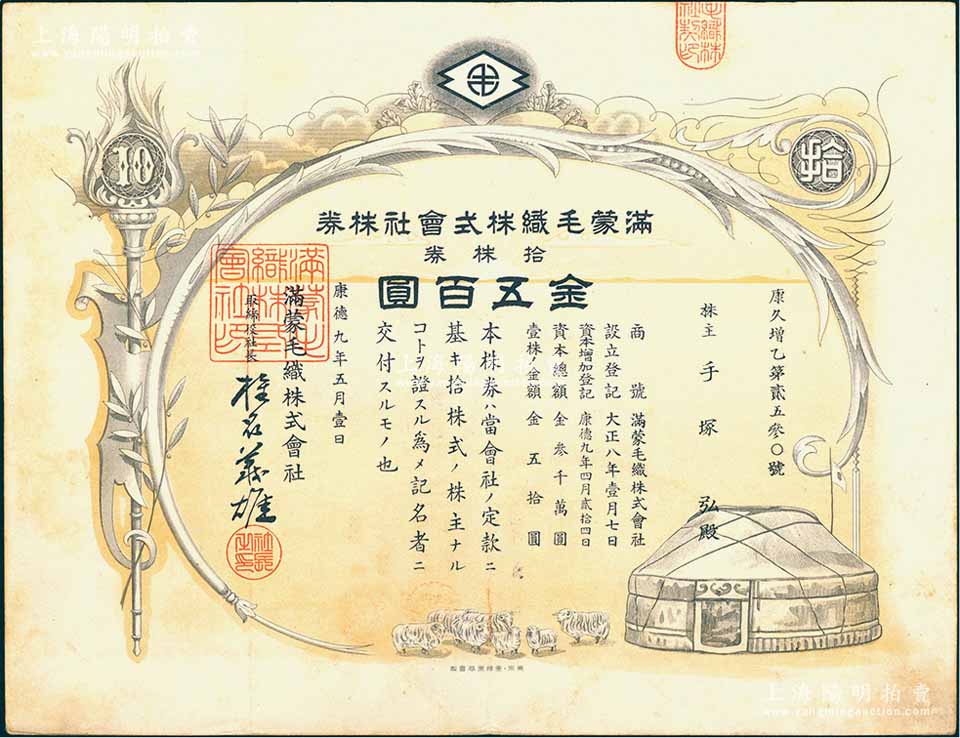 上海陽明拍賣
www.yangmingauction.com
10
拾
滿蒙毛織株式會社株券
拾株券
金五百圓
康久增乙第貳五參〇號
株主 手塚 弘殿
商號 滿蒙毛織株式會社
設立登記 大正八年壹月七日
資本增加登記 康德九年四月貳拾四日
資本總額 金參千萬圓
壹株ノ金額 金五拾圓
本株券ハ當會社ノ定款ニ
基キ拾株式ノ株主ナル
コトヲ證スル為メ記名者ニ
交付スルモノ也
康德九年五月壹日
滿蒙毛織株式會社
取締役社長 椎名義雄
滿蒙毛織株式會社印
社長之印
上海陽明拍賣
www.yangmingauction.com